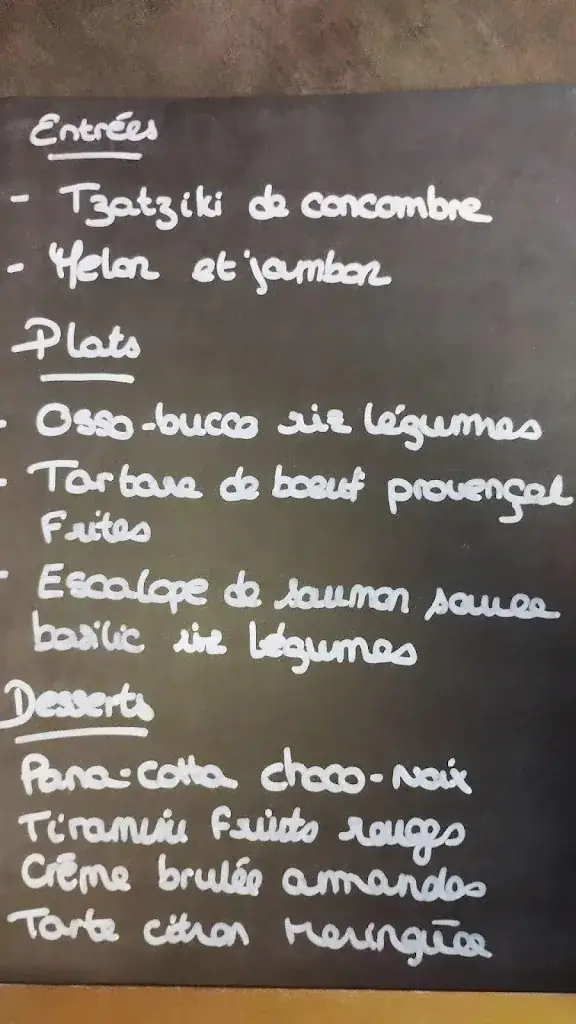 Entrées
- Tzatziki de concombre
- Melon et jambon
Plats
- Osso-bucco riz légumes
- Tartare de boeuf provençal
Frites
- Escalope de saumon sauce
basilic riz légumes
Desserts
Pana-cotta choco-noix
Tiramisu fruits rouges
Crême brulée amandes
Tarte citron meringuée